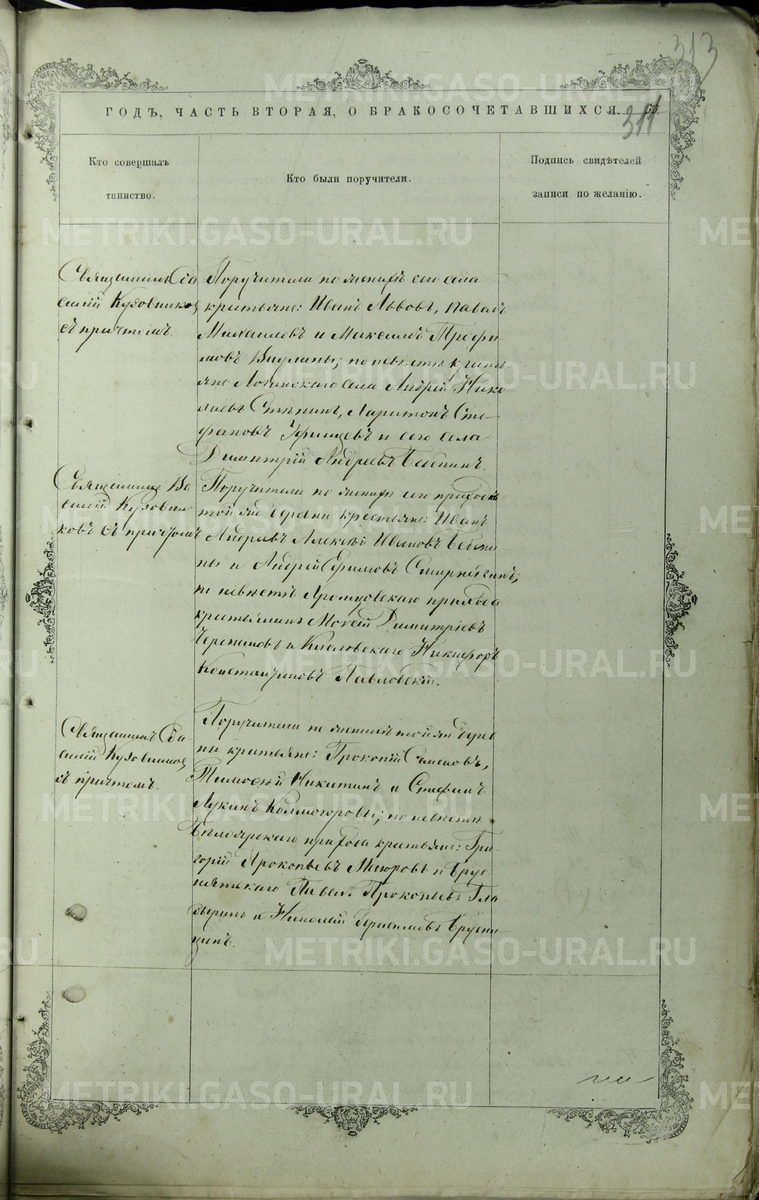 313
ГОДЪ, ЧАСТЬ ВТОРАЯ, О БРАКОСОЧЕТАВШИХСЯ.
311
Кто совершалъ
таинство.
Кто были поручители.
Подпись свидѣтелей
записи по желанію.
Священникъ Ва
силій Кузовников
съ причтомъ.
Поручители по женихѣ сего села
крестьяне: Иванъ Львовъ, Павелъ
Михаиловъ и Максимъ Трофи
мовъ; по невѣстѣ кресть
яне села Андрей Нико
лаевъ, Харитонъ Сте
фановъ и сего села
Димитрій Андреевъ
Священникъ Ва
силій Кузовни
ковъ съ причтомъ
Поручители по женихѣ
той же деревни крестьяне: Иванъ
Андреевъ Алексѣй Ивановъ
ны и Андрей Ефимовъ
по невѣстѣ прихода
крестьянинъ Моѵсей Димитріевъ
Черепановъ и Никифоръ
Константиновъ Павловскій.
Священникъ Ва
силій Кузовников
съ причтомъ.
Поручители по женихѣ той же дерев
ни крестьяне: Прокопій Семеновъ,
Тимоѳей Никитинъ и Стефанъ
Лукинъ Колмогоровы; по невѣстѣ
Бѣлоярскаго прихода крестьяне: Гри
горій Прокопьевъ и Брус
нятскаго Павелъ Прокопьевъ Гла
зыринъ и Николай Брусни
цинъ.
METRIKI.GASO-URAL.RU